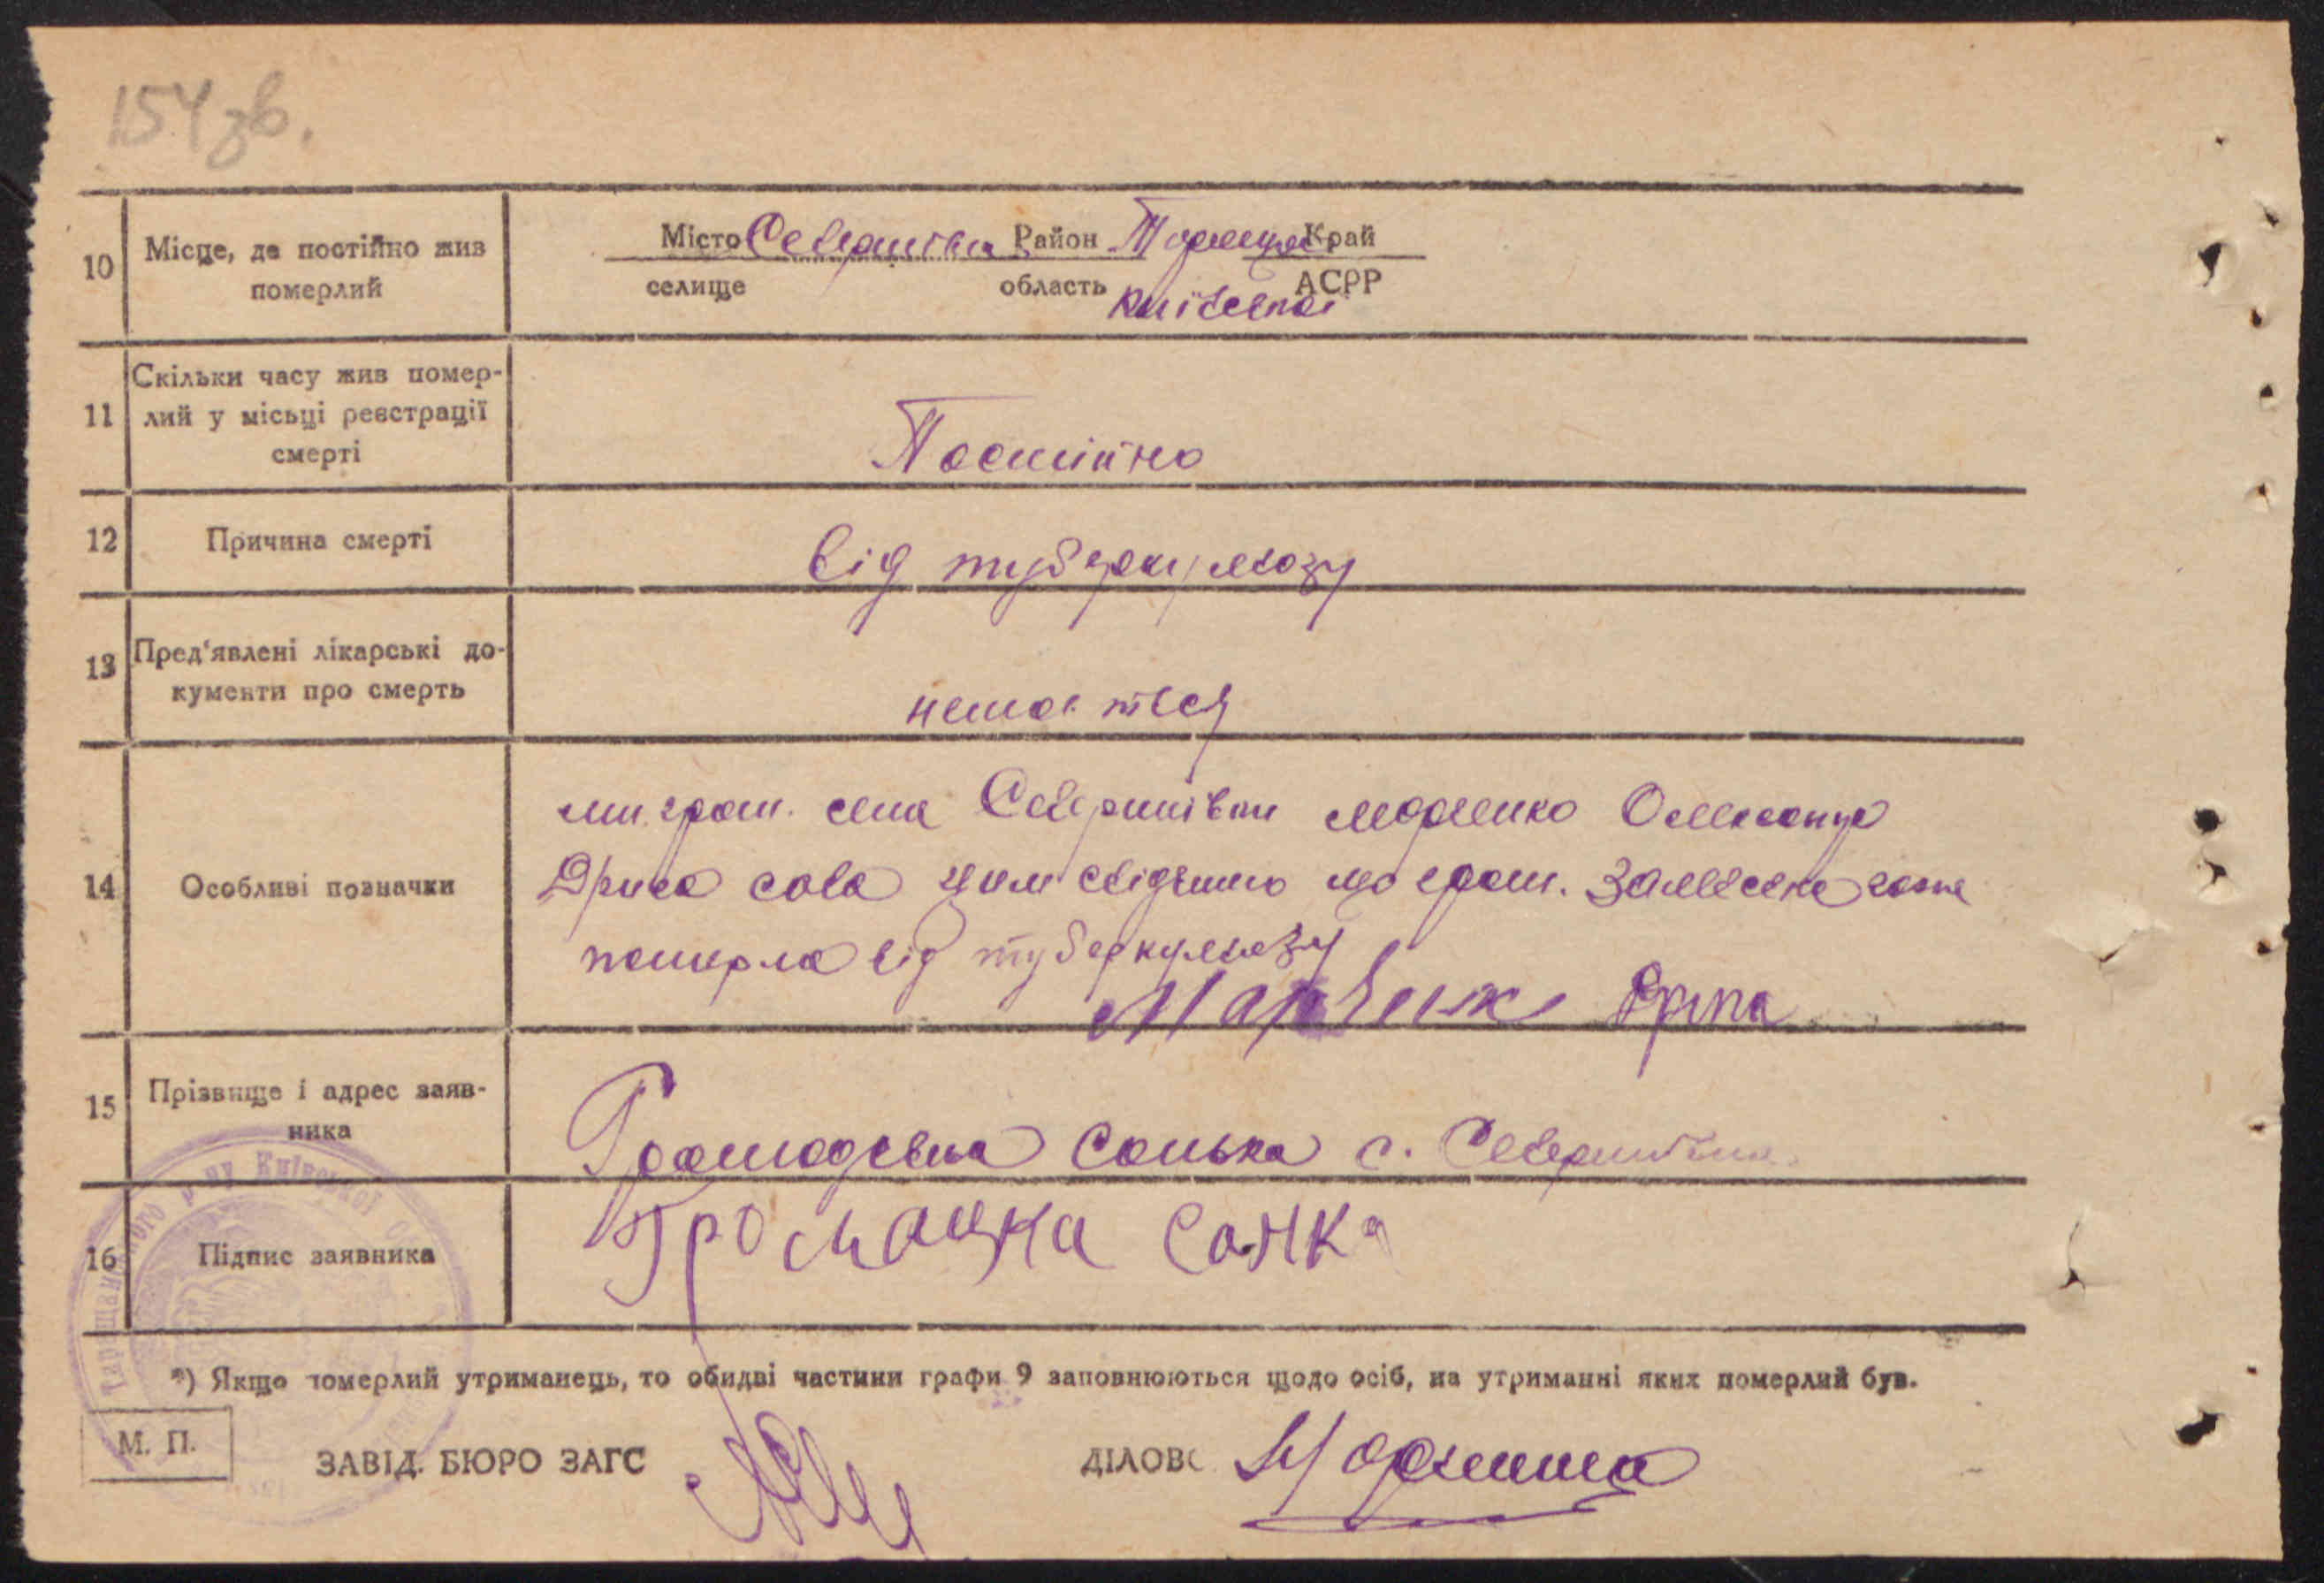 154 зв.
10 Місце, де постійно жив померлий
Місто Северинівка Район Таращанс Край
селище область АСРР
Київської
11 Скільки часу жив помер-
лий у місьці реєстрації
смерті
Постійно
12 Причина смерті
від туберкульозу
13 Пред'явлені лікарські до-
кументи про смерть
немається
14 Особливі позначки
ми грам. села Северинівки
цим свідчимо що гром.
померла від туберкульозу
15 Прізвище і адрес заяв-
ника
Сонька с. Северинівка
16 Підпис заявника
Громацка Сонка
*) Якщо померлий утриманець, то обидві частини графи 9 заповнюються щодо осіб, на утриманні яких померлий був.
М. П.
ЗАВІД. БЮРО ЗАГС
ДІЛОВ